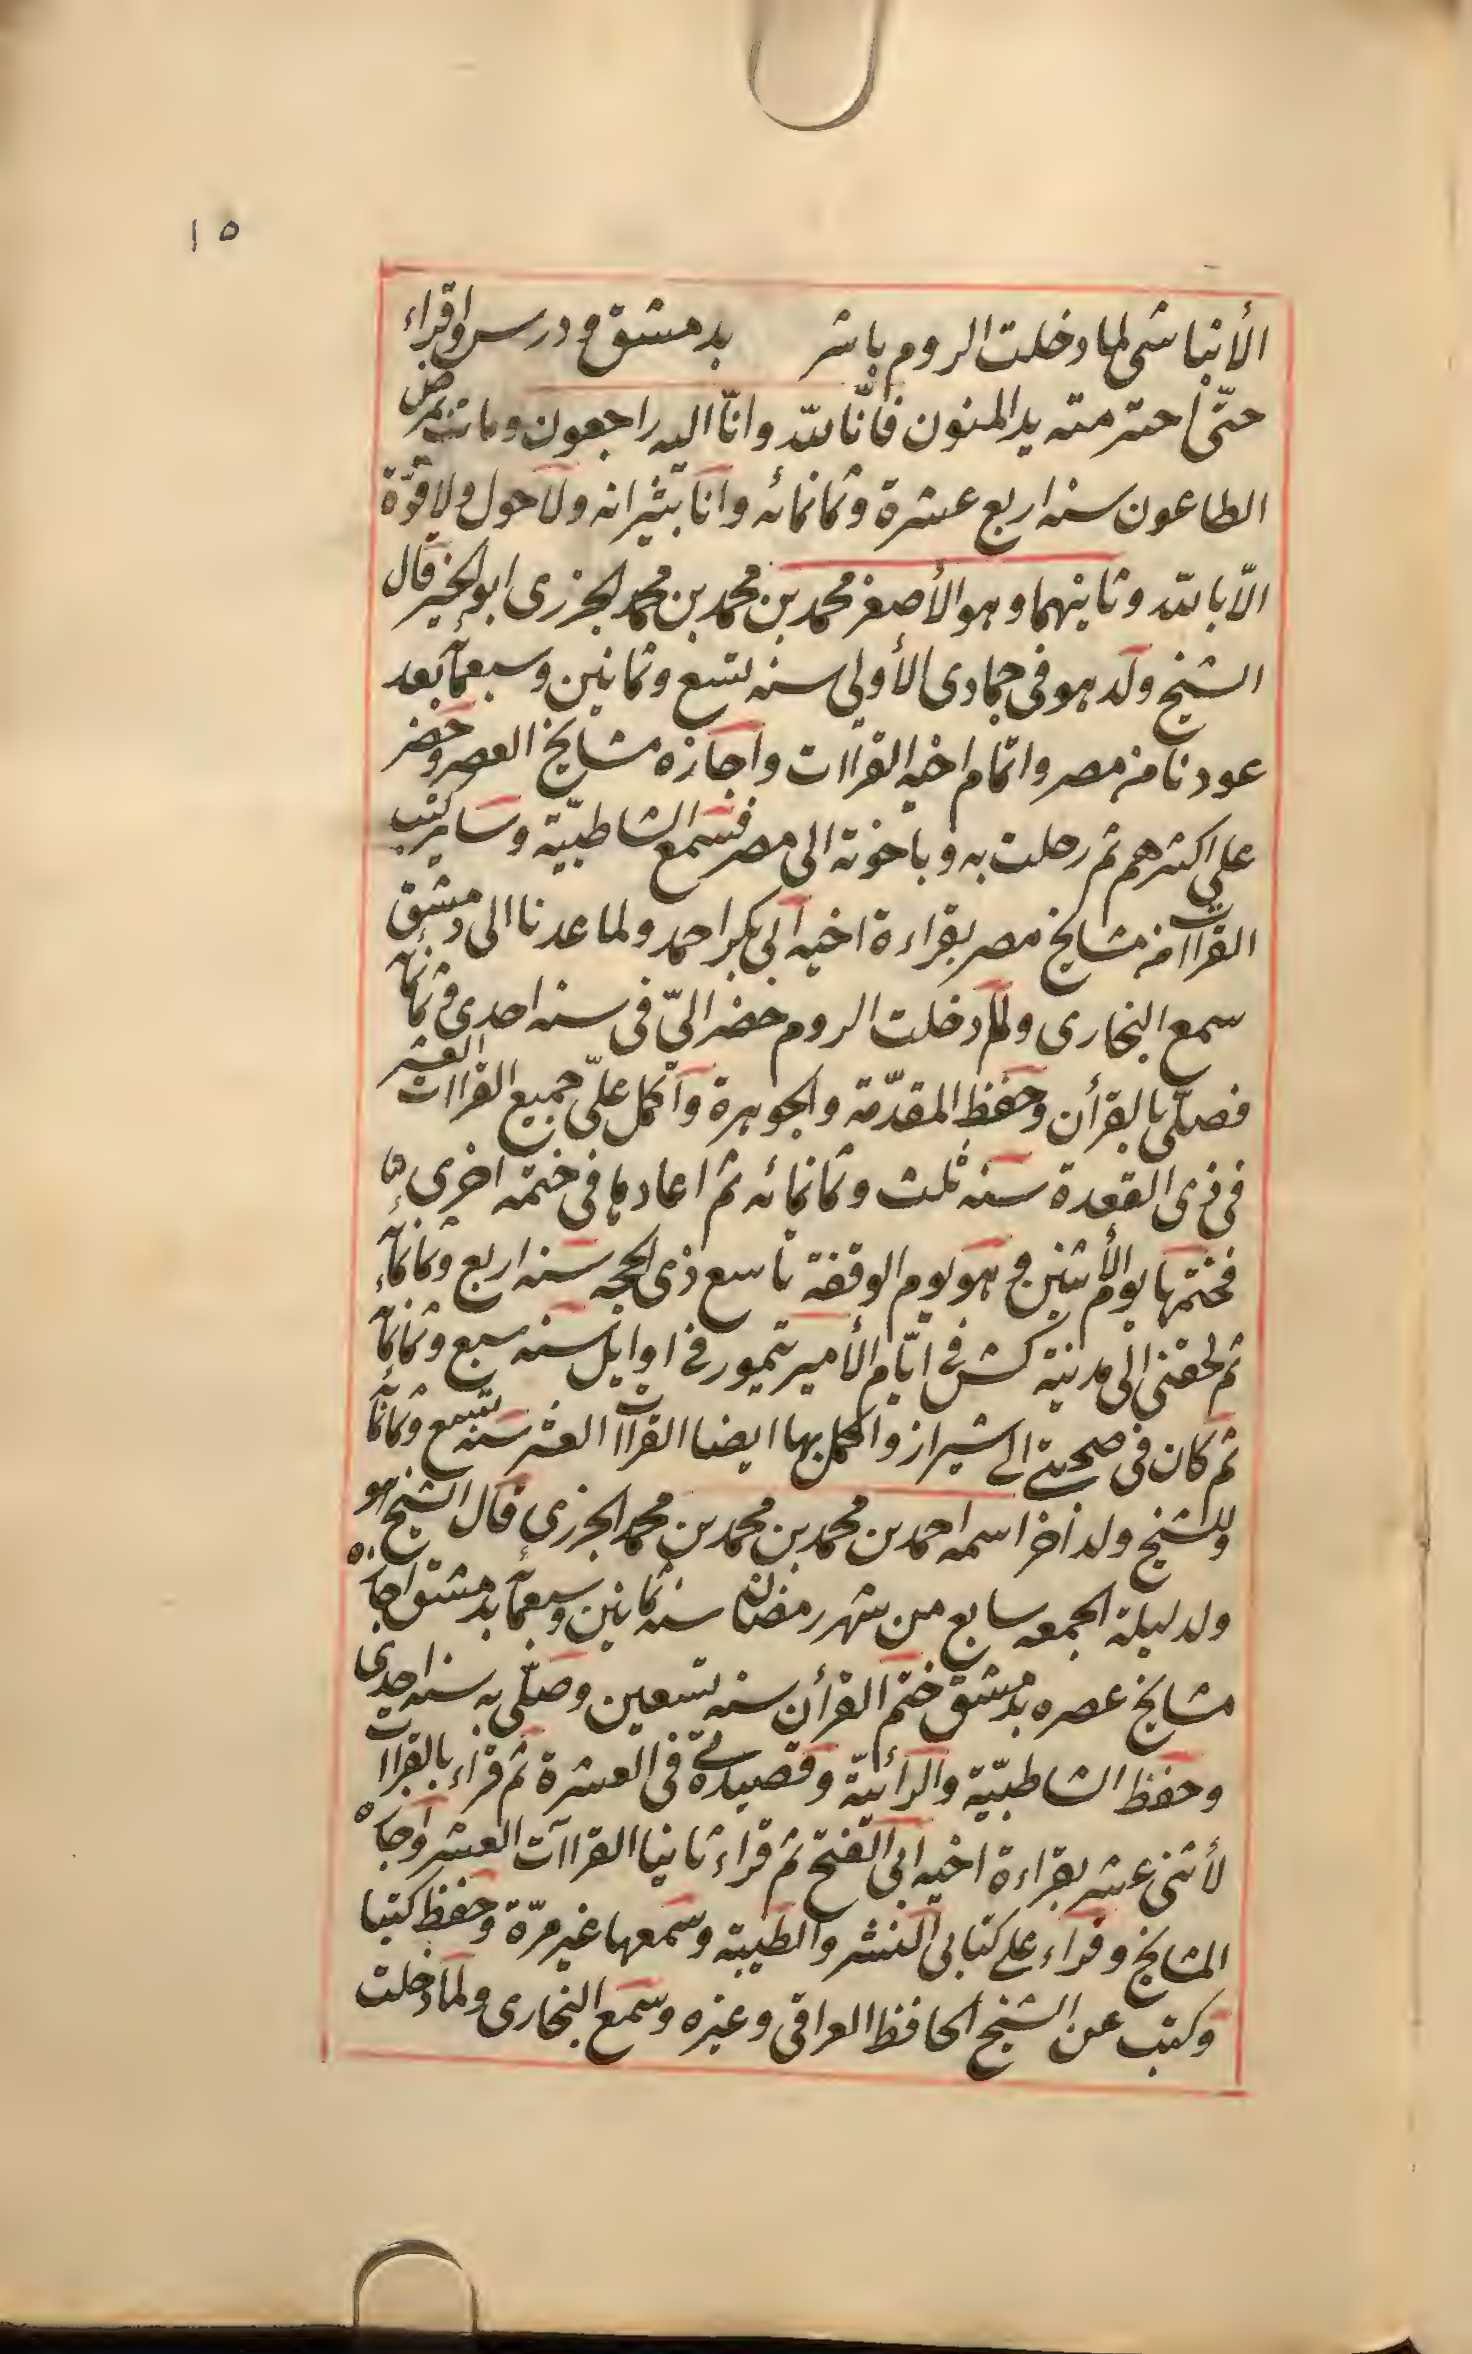 ١٥
الأنباشى لما دخلت الروم باشر بدمشق ودرس واقراء
حتّى أخترمته يد المنون فانّا لله وانّا اليه راجعون ومات بمرض
الطاعون سنه اربع عشرة وثمانمائه وانا بشيرانه ولا حول ولا قوّة
الّا بالله وثانيهما وهو الأصغر محمد بن محمد بن محمد الجزرى ابو الخير قال
الشيخ ولد هو فى جمادى الأولى سنه تسع وثمانين وسبعمأ بعد
عودنا من مصر واتمام اخيه القراات واجازه مشايخ العصر وحضر
على اكثرهم ثم رحلت به وباخوته الى مصر فسمع الشاطبيّة وساير كتب
القراات من مشايخ مصر بقراءة اخيه ابى بكر احمد ولما عدنا الى دمشق
سمع البخارى ولما دخلت الروم حضر اليّ فى سنه احدى وثمانمأ
فصلّى بالقرأن وحفظ المقدّمة والجوهرة واكمل عليّ جميع القراات العشر
فى ذى القعدة سنه ثلث وثمانمائه ثم اعادها فى ختمه اخرى
فختمها يوم الأثنين وهو يوم الوقفة تاسع ذى الحجه سنه اربع وثمانمأ
ثم لحقنى الى مدينة كش فى ايّام الأمير تيمور فى اوايل سنه سبع وثمانمأ
ثم كان فى صحبتى الى شيراز واكمل بها ايضا القراات العشر سنه تسع وثمانمأ
وللشيخ ولد أخر اسمه احمد بن محمد بن محمد بن محمد الجزرى قال الشيخ هو
ولد ليلة الجمعه سابع من شهر رمضان سنه ثمانين وسبعمأ بدمشق اجازه
مشايخ عصره بدمشق ختم القرأن سنه تسعين وصلّى به سنه احدى
وحفظ الشاطبيّة والرائيّة وقصيدتى فى العشرة ثم قراء بالقراات
لأثنى عشر بقراءة اخيه ابى الفتح ثم قراء ثانيا القراات العشر واجازه
المشايخ وقراء على كتابى النشر والطيبه وسمعها غير مرّة وحفظ كتبا
وكتب عن الشيخ الحافظ العراقى وغيره وسمع البخارى ولما دخلت